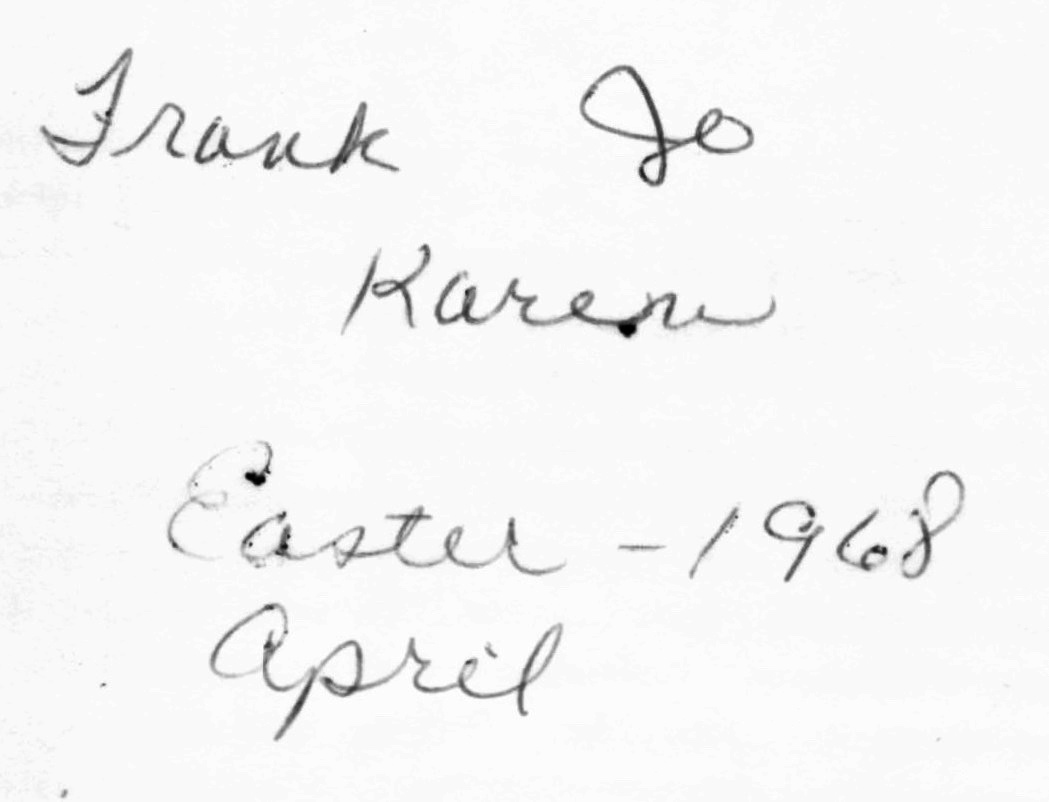 Frank Jo
Karen
Easter - 1968
April